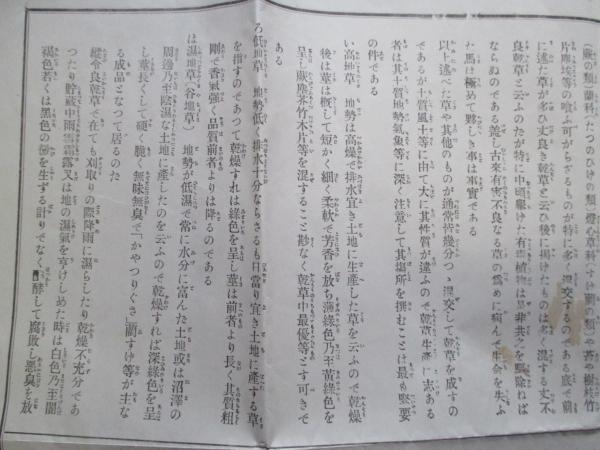 (蕨の類)蘭科(たつのひげの類)燈心草科(すげ藺の類)や苔や樹枝竹
片塵埃等の喰ふ可がらざるものが特に多く混交するのである底で前
に述た草が多ひ丈良き乾草と云ひ後に掲けたものは多く混する丈不
良乾草と云ふのだが特に中頃擧けた有毒植物は是非共之を驅除ねば
ならぬのである蓋し古來有毒不良なる草の爲めに病んで生命を失ふ
た馬は極めて夥しき事は事實である
以上述べた草や其他のものが通常皆幾分つゝ混交して乾草を成すの
であるが土質風土等に由て大に其性質が違ふので乾草生產に志ある
者は其土質地勢氣象等に深く注意して其塲所を撰むことは最も緊要
の件である
い高地草 地勢は高燥で排水宜き土地に生產した草を云ふので乾燥
後は葉は槪して短かく細く柔軟で芳香を放ち薄綠色乃至黃綠色を
呈し蘇塵芥竹木片等を混すること尠なく乾草中最優等とす可きで
ある
ろ低地草 地勢低く排水十分ならざるも日當り宜き土地に產する草
を指すのであつて乾燥すれは綠色を呈し葉は前者より長く其質粗
剛で香氣强く品質前者よりは降るのである
は濕地草(谷地草) 地勢が低濕で常に水分に富んた土地或は沼澤の
周邊乃至陰濕な土地に產したのを云ふので乾燥すれば深綠色を呈
し葉長くして硬く脆く無味無臭で「かやつりぐさ」「藺すげ等が主な
る成品となつて居るのた
縱令良乾草で在ても刈取りの際降雨に濕らしたり乾燥不充分であ
つたり貯藏中雨雪霧露又は地の濕氣を享けしめた時は白色乃至闇
褐色若くは黑色の黴を生する計りでなく酵して腐敗し惡臭を放